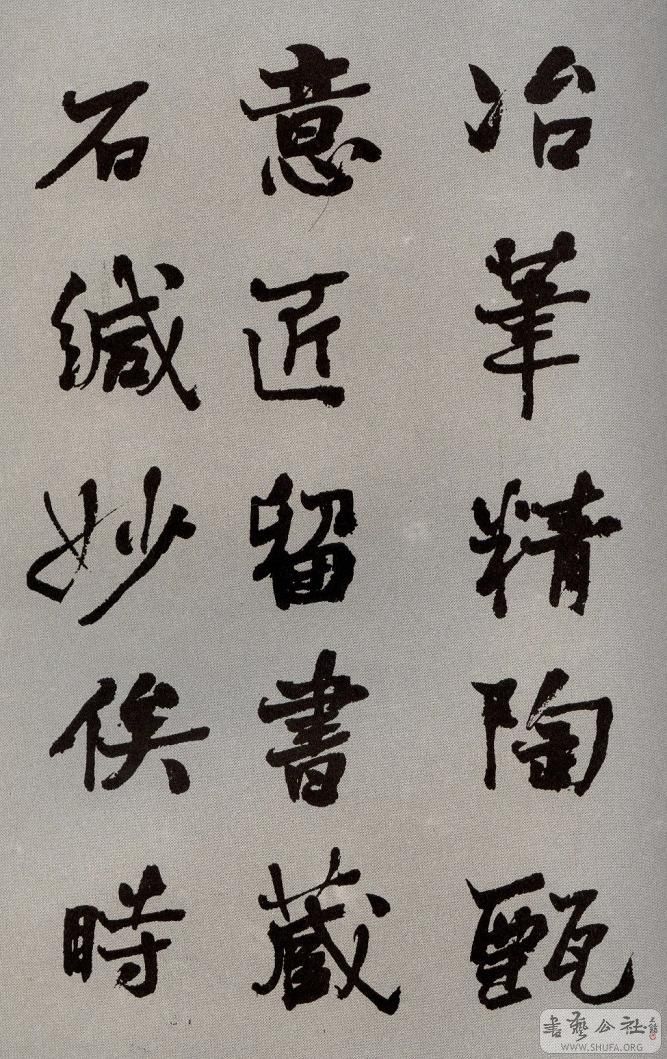 冶筆精陶甄
意近留書藏
石緘妙俟時
書藝公社
WWW.SHUFA.ORG